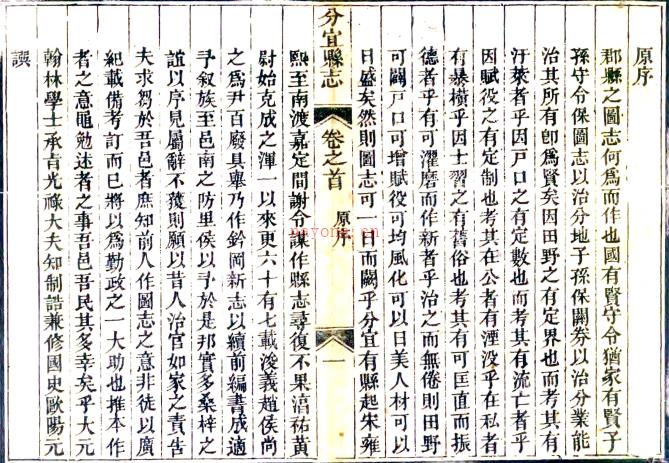 原序
郡縣之圖志何爲而作也國有賢守令猶家有賢子
孫守令保圖志以治分地子孫保關券以治分業能
治其所有卽爲賢矣因田野之有定界也而考其有
汙萊者乎因戶口之有定數也而考其有流亡者乎
因賦役之有定制也考其在公者有湮没乎在私者
有暴橫乎因士習之有舊俗也考其有可匡直而振
德者乎有可濯磨而作新者乎治之而無倦則田野
可闢戶口可增賦役可均風化可以日美人材可以
日盛矣然則圖志可一日而闕乎分宜有縣起宋雍
分宜縣志
卷之首
原序
一
熙至南渡嘉定間謝令謀作縣志尋復不果淳祐黃
尉始克成之渾一以來更六十有七載浚義趙侯尚
之爲尹百廢具舉乃作鈐岡新志以續前編書成適
予叙族至邑南之防里侯以予於是邦實多桑梓之
誼以序見屬辭不獲則願以昔人治官如家之責告
夫求芻於吾邑者庶知前人作圖志之意非徒以廣
紀載備考訂而已將以爲勤政之一大助也推本作
者之意黽勉述者之事吾邑吾民其多幸矣乎大元
翰林學士承㫖光祿大夫知制誥兼修國史歐陽元
譔